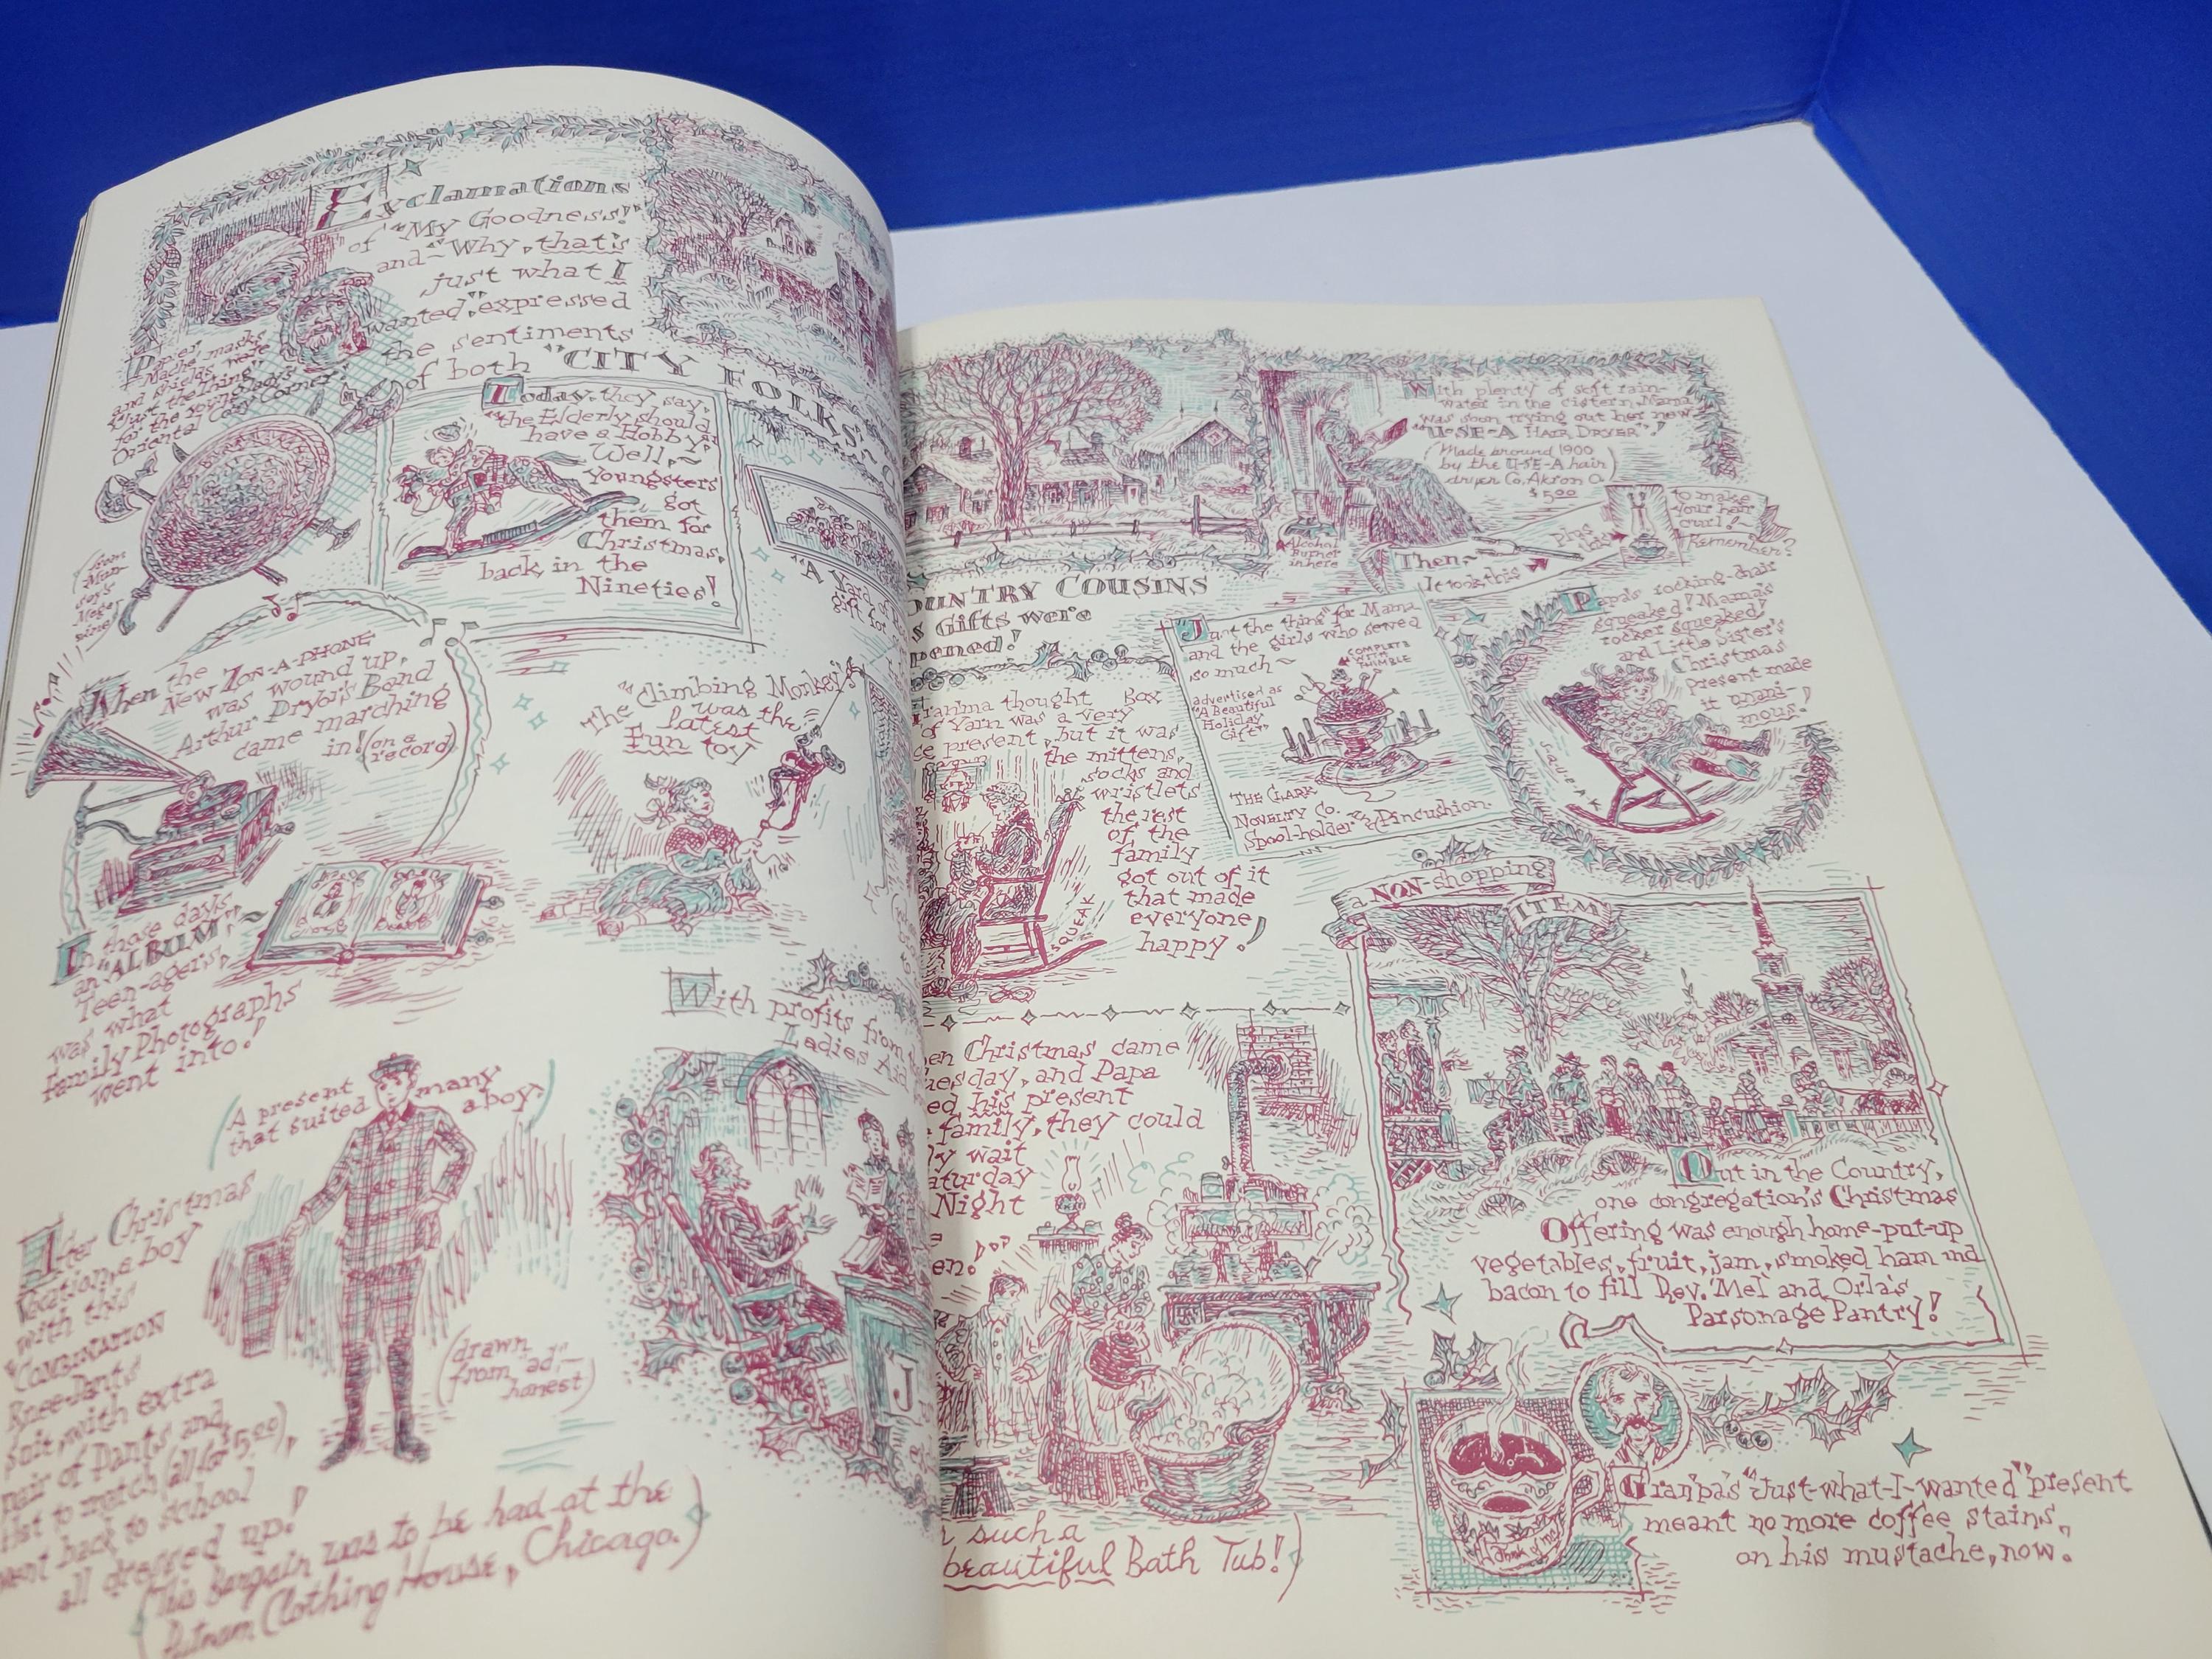 Exclamations
of "My Goodness!"
and "Why, that's
just what I
wanted," expressed
the sentiments
of both "CITY FOLKS
Papier
Mache masks
and shields were
"Just the thing"
for the young lady's
Oriental Cozy Corner"
(from
Mun-
sey's
Maga-
zine)
Today, they say,
"the Elderly should
have a Hobby."
Well, ~
Youngsters
got
them for
Christmas,
back in the
Nineties!
"A Yard of
gift for
When the
New ZON-A-PHONE
was wound up,
Arthur Pryor's Band
came marching
in! (on a
record)
"The Climbing Monkey"
was the
latest
Fun toy
In those days,
an "ALBUM" ~
Teen-agers,
was what
family Photographs
went into!
With profits from
Ladies Aid
(A present many
that suited a boy)
After Christmas
Vacation, a boy
with this
"COMBINATION
Knee-Pants
Suit, with extra
pair of Pants and
Hat to match (all for $5.00),
went back to school
all dressed up!
(drawn
from "ad" ~
honest)
(This bargain was to be had at the
Putnam Clothing House, Chicago.)
J
With plenty of soft rain-
water in the cistern, Mama
was soon trying out her new
"U-SE-A HAIR DRYER"!
(Made around 1900
by the U-SE-A hair
dryer Co. Akron O.
$5.00)
Alcohol
Burner
in here
Then ~
It took this
Plus
this
to make
your hair
curl! ~
Remember?
OUNTRY COUSINS
s Gifts were
pened!
ranma thought Box
of Yarn was a very
present, but it was
the mittens,
socks and
wristlets
the rest
of the
family
got out of it
that made
everyone
happy!
SQUEAK
"Just the thing" for Mama
and the girls who sewed
so much ~
COMPLETE
WITH
THIMBLE
advertised as
"A Beautiful
Holiday
Gift"
THE CLARK
NOVELTY CO.
Spool-holder and Pincushion.
Papa's rocking-chair
squeaked! Mama's
rocker squeaked!
and Little Sister's
Christmas
Present made
it unani-
mous!
SQUEAK
a NON-shopping
ITEM
Out in the Country,
one congregation's Christmas
Offering was enough home-put-up
vegetables, fruit, jam, smoked ham and
bacon to fill Rev. Mel and Orla's
Parsonage Pantry!
en Christmas came
uesday, and Papa
ed his present
family, they could
ly wait
aturday
Night
en!
r such a
beautiful Bath Tub!)
Granpa's "Just-what-I-wanted" present
meant no more coffee stains,
on his mustache, now.